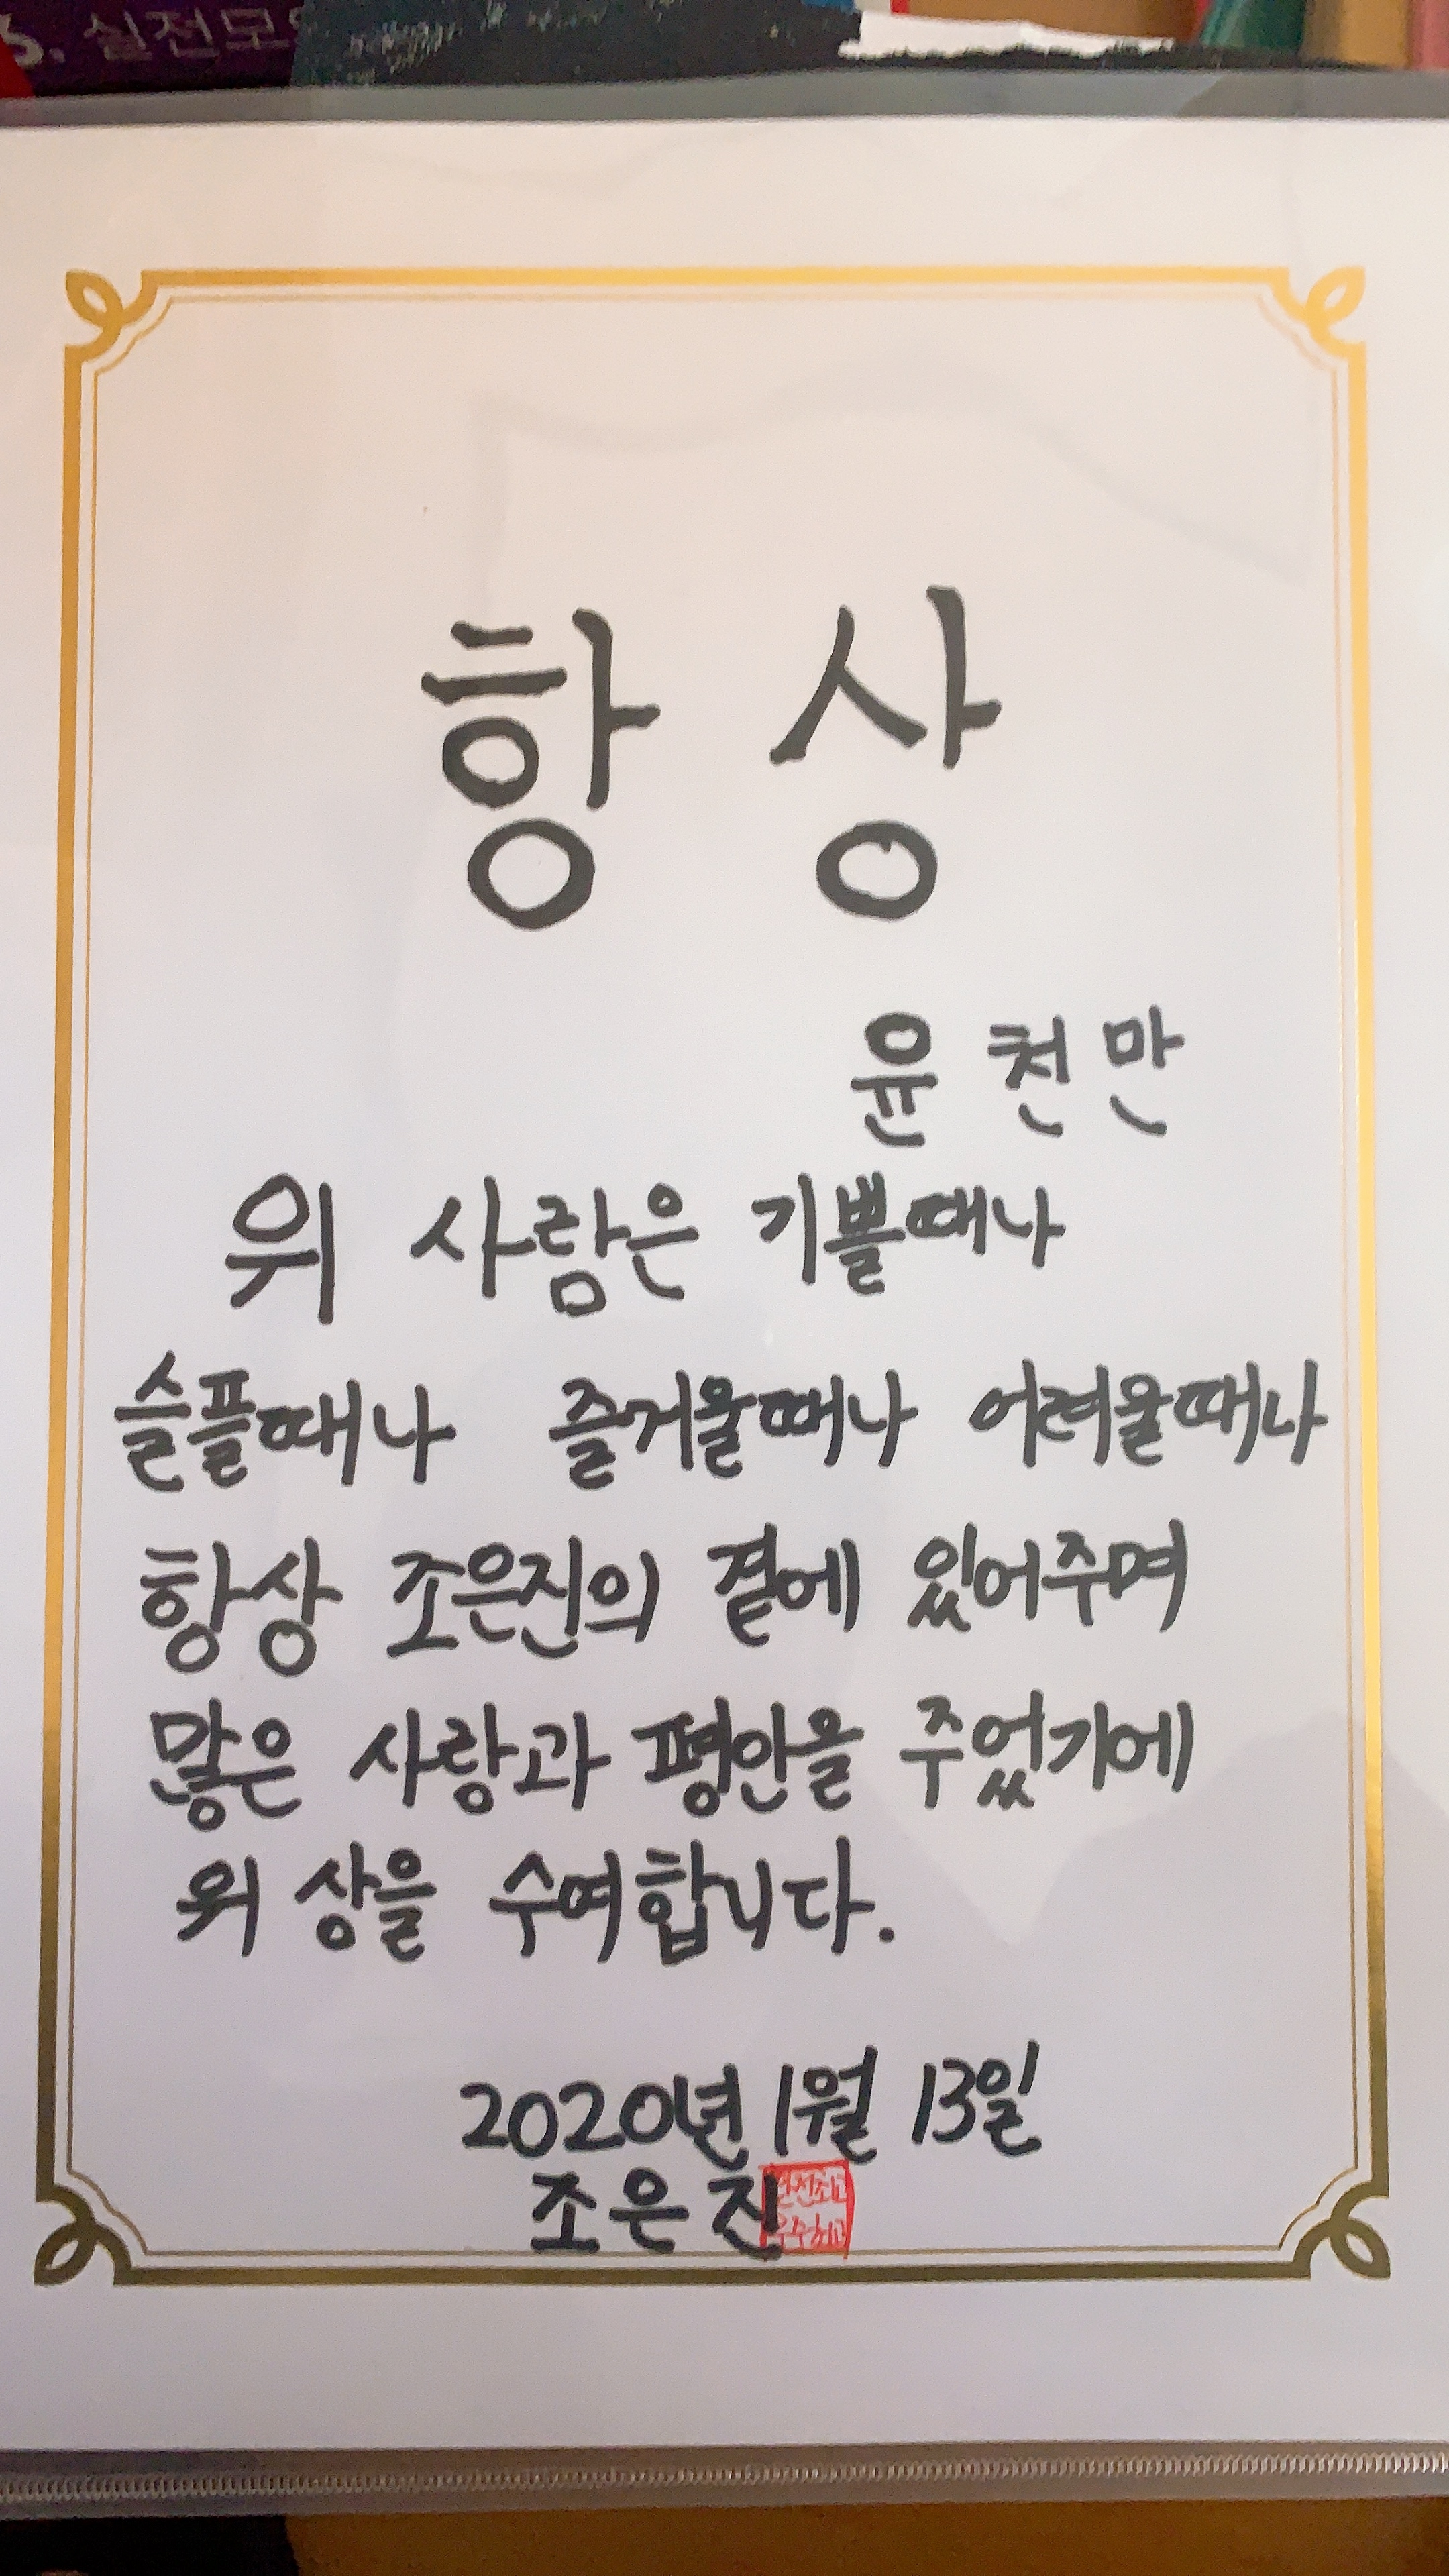 5. 실전모
항 상
윤 천 만
위 사람은 기쁠때나
슬플때나 즐거울때나 어려울때나
항상 조은진의 곁에 있어주며
많은 사랑과 평안을 주었기에
위 상을 수여합니다.
2020년 1월 13일
조은진